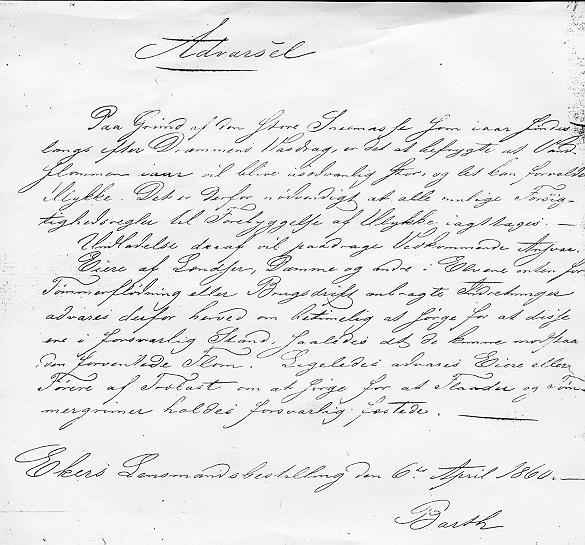 Advarsel
Paa Grund af den store Sneemasse som iaar findes
langs efter Drammens Vasdrag, er det at befrygte at Vand
flommen iaar vil blive usedvanlig stor, og let kan forvolde
Ulykke. Det er derfor nødvendigt at alle mulige Forsig-
tighedsregler til Forebyggelse af Ulykke iagttages. —
Undladelse deraf vil paadrage Vedkommende Ansvar.
Eiere af Lendser, Damme og andre i Elvene enten for
Tømmerflødning eller Brugsdrift anbragte Indretninger
advares derfor herved om betimelig at sørge for at disse
ere i forsvarlig Stand, saaledes at de kunne modstaa
den forventede Flom. Ligeledes advares Eiere eller
Førere af Trælast om at sørge for at Flaader og Tøm
mergrimer holdes forsvarlig fæstede. —
Ekers Lensmandsbestilling den 6te April 1860. —
Barth